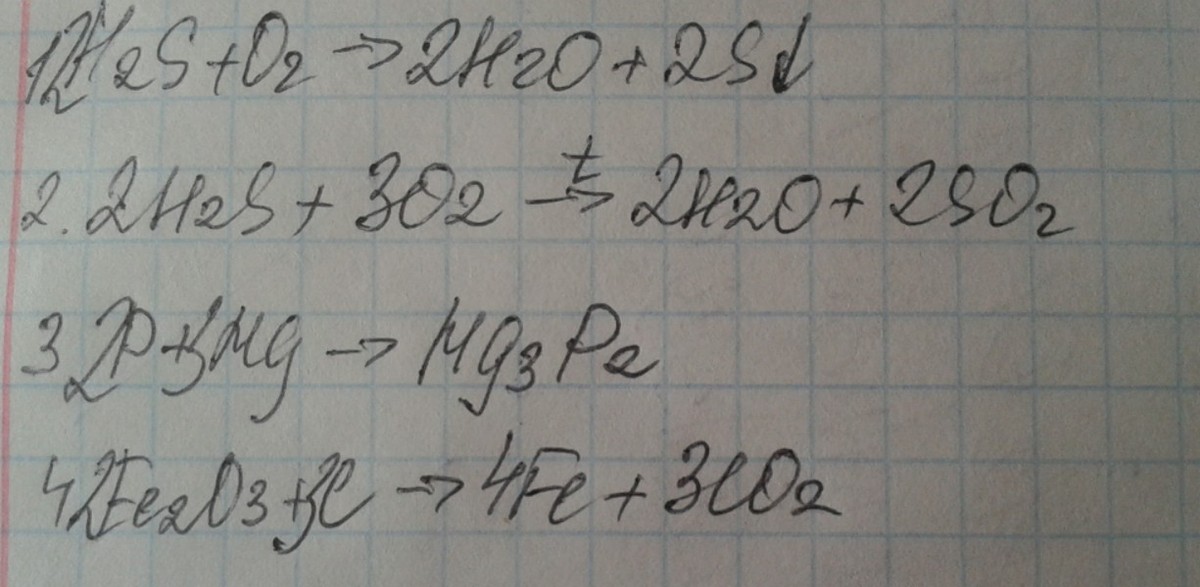 1) 2H2S+O2→2H2O+2S↓
2. 2H2S+3O2 t→ 2H2O+2SO2
3 2P+3Mg→Mg3P2
4 2Fe2O3+3C→4Fe+3CO2